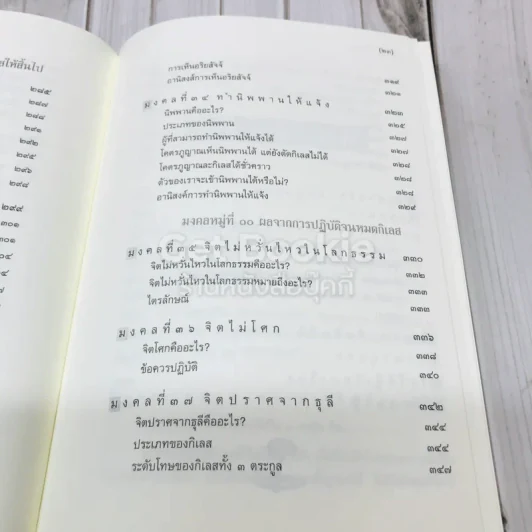 ยให้สิ้นไป
๒๘๕
๒๘๗
๒๘๘
๒๙๑
๒๙๕
๒๙๖
๒๙๘
๒๙๙
๓๐๑
[๒๙]
การเห็นอริยสัจจ์
อานิสงส์การเห็นอริยสัจจ์ ๓๑๙
๓๒๑
มงคลที่ ๓๔ ทำนิพพานให้แจ้ง
นิพพานคืออะไร? ๓๒๓
ประเภทของนิพพาน ๓๒๕
ผู้ที่สามารถทำนิพพานให้แจ้งได้ ๓๒๗
โคตรภูญาณเห็นนิพพานได้ แต่ยังตัดกิเลสไม่ได้ ๓๒๗
โคตรภูญาณละกิเลสได้ชั่วคราว ๓๒๘
ตัวของเราจะเข้านิพพานได้หรือไม่? ๓๒๘
อานิสงค์การทำนิพพานให้แจ้ง ๓๒๙
มงคลหมู่ที่ ๑๐ ผลจากการปฏิบัติจนหมดกิเลส
มงคลที่ ๓๕ จิตไม่หวั่นไหวในโลกธรรม ๓๓๐
จิตไม่หวั่นไหวในโลกธรรมคืออะไร? ๓๓๒
จิตไม่หวั่นไหวในโลกธรรมหมายถึงอะไร? ๓๓๓
ไตรลักษณ์ ๓๓๓
มงคลที่ ๓๖ จิตไม่โศก ๓๓๖
จิตโศกคืออะไร? ๓๓๘
ข้อควรปฏิบัติ ๓๔๐
มงคลที่ ๓๗ จิตปราศจากธุลี ๓๔๒
จิตปราศจากธุลีคืออะไร? ๓๔๔
ประเภทของกิเลส ๓๔๔
ระดับโทษของกิเลสทั้ง ๓ ตระกูล ๓๔๗
ร้านหนังสือบุ๊คกี้